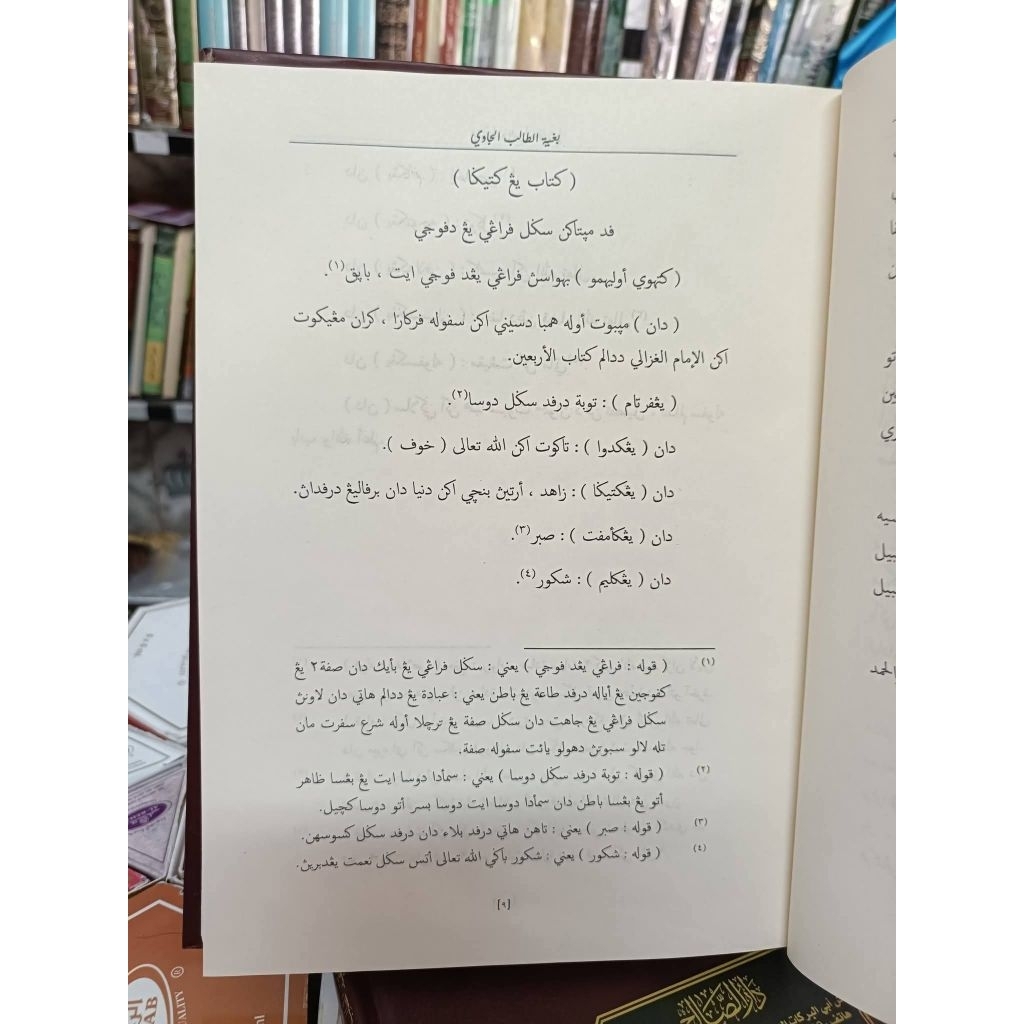 بغية الطالب الجاوي
( كتاب يڠ كتيݢا )
فد مپتاكن سݢل فراڠي يڠ دفوجي
( كتهوي أوليهمو ) بهواسڽ فراڠي يڠد فوجي ايت ، باپق(١).
( دان ) مپبوت أوله همبا دسيني اكن سفوله فركارا ، كران مڠيكوت
اكن الإمام الغزالي ددالم كتاب الأربعين.
( يڠفرتام ) : توبة درفد سݢل دوسا(٢).
دان ( يڠكدوا ) : تاكوت اكن الله تعالى ( خوف ).
دان ( يڠكتيݢا ) : زاهد ، أرتيڽ بنچي اكن دنيا دان برفاليڠ درفداڽ.
دان ( يڠكأمفت ) : صبر(٣).
دان ( يڠكليم ) : شكور(٤).
(١) ( قوله : فراڠي يڠد فوجي ) يعني : سݢل فراڠي يڠ بأيك دان صفة ٢ يڠ
كفوجين يڠ أياله درفد طاعة يڠ باطن يعني : عبادة يڠ ددالم هاتي دان لاونڽ
سݢل فراڠي يڠ جاهت دان سݢل صفة يڠ ترچلا أوله شرع سفرت مان
تله لالو سبوتڽ دهولو يائت سفوله صفة.
(٢) ( قوله : توبة درفد سݢل دوسا ) يعني : سمأدا دوسا ايت يڠ بڠسا ظاهر
أتو يڠ بڠسا باطن دان سمأدا دوسا ايت دوسا بسر أتو دوسا كچيل.
(٣) ( قوله : صبر ) يعني : تاهن هاتي درفد بلاء دان درفد سݢل كسوسهن.
(٤) ( قوله : شكور ) يعني : شكور باݢي الله تعالى أتس سݢل نعمت يڠدبريڽ.
[٩]
أتو
سبيل
الحمد
دار الصالح